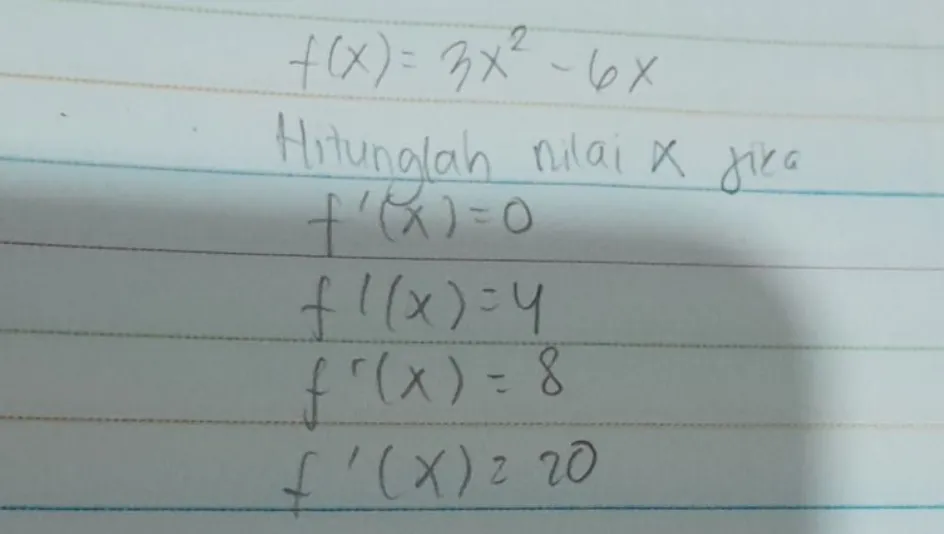 f(x) = 3x² - 6x
Hitunglah nilai x jika
f'(x) = 0
f'(x) = 4
f'(x) = 8
f'(x) = 20